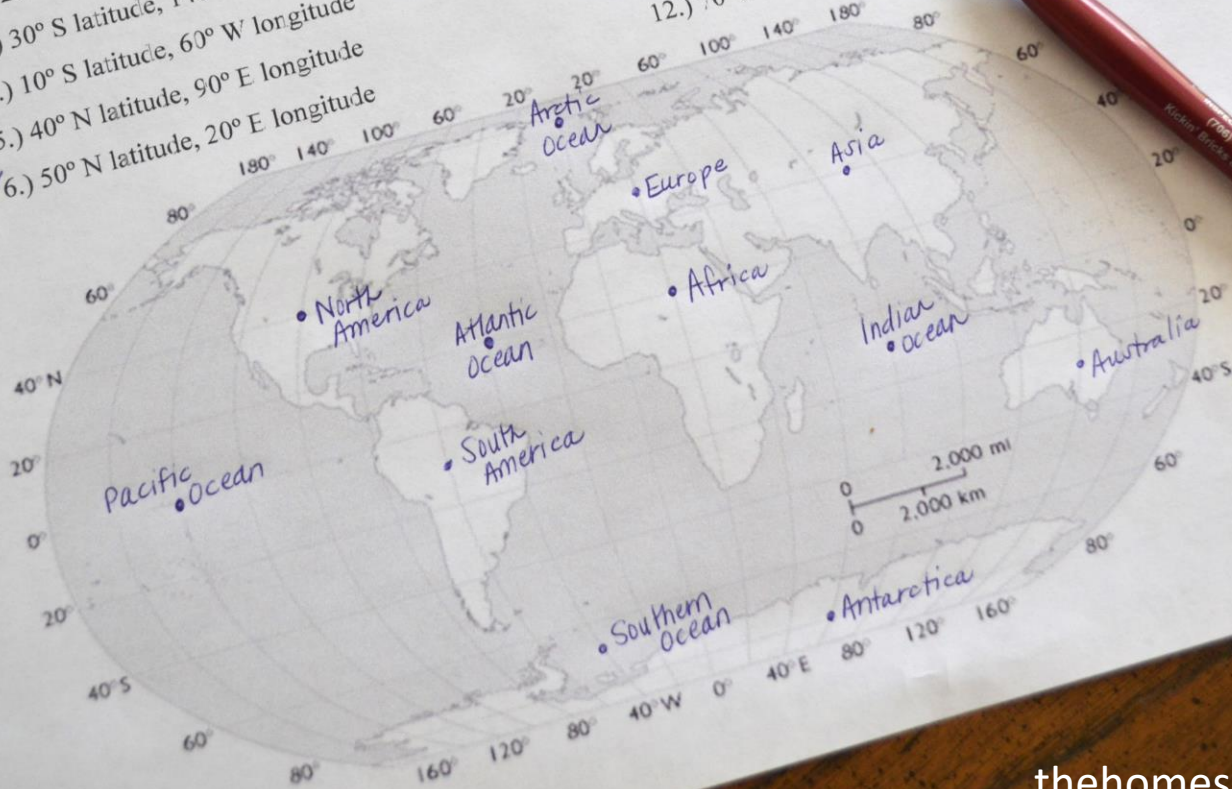 30° S latitude,
.) 10° S latitude, 60° W longitude
5.) 40° N latitude, 90° E longitude
6.) 50° N latitude, 20° E longitude
12.)
180° 140° 100° 60° 20° 20° 60° 100° 140° 180° 80°
60°
40°
20°
0°
20°
40° S
60°
80°
80°
60°
40° N
20°
0°
20°
40° S
60°
80°
160° 120° 80° 40° W 0° 40° E 80° 120° 160°
Arctic
Ocean
Europe
Asia
North
America
Atlantic
Ocean
Africa
Indian
Ocean
Australia
Pacific
Ocean
South
America
2,000 mi
0
0 2,000 km
Southern
Ocean
Antarctica
Kickin' Bricks
thehomes